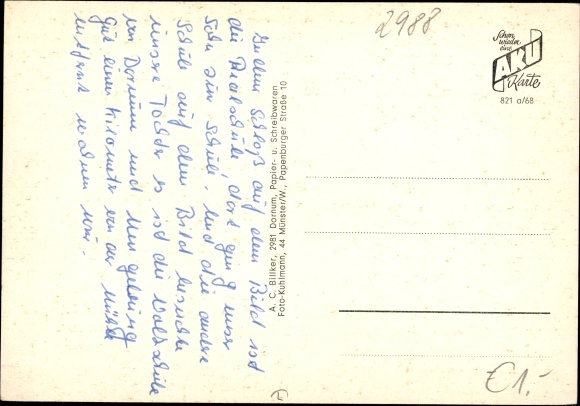 In dem Schloß auf dem Bild ist
die Realschule, dort ging unser
Sohn zur Schule. Und die andere
Schule auf dem Bild besuchte
unsere Tochter es ist die Volksschule
von Dornum und Umgebung
gut einen Kilometer von der Mühle
entfernt wohnen wir.
A. C. Billker, 2981 Dornum, Papier- u. Schreibwaren
Foto-Kuhlmann, 44 Münster/W., Papenburger Straße 10
2988
Schon
wieder
eine
AKU
Karte
821 a/68
€1,-